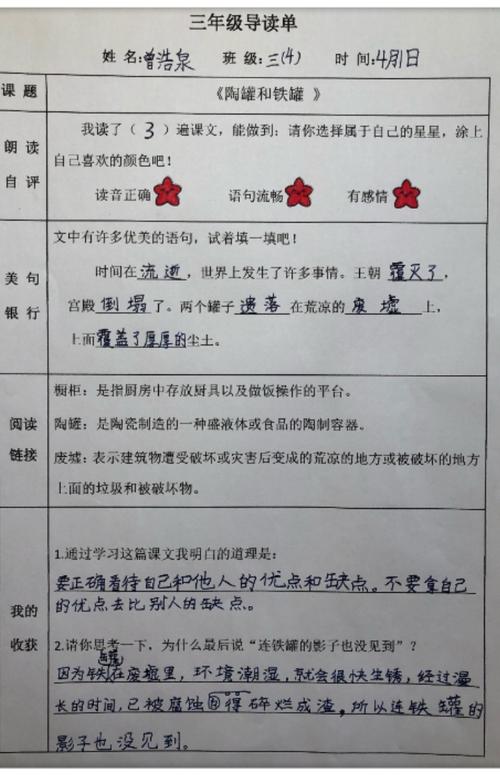 三年级导读单
姓名:曾浩泉 班级:三(4) 时间:4月1日
课题 《陶罐和铁罐》
朗读自评
我读了（3）遍课文，能做到：请你选择属于自己的星星，涂上
自己喜欢的颜色吧！
读音正确 语句流畅 有感情
美句银行
文中有许多优美的语句，试着填一填吧！
时间在流逝，世界上发生了许多事情。王朝覆灭了，
宫殿倒塌了。两个罐子遗落在荒凉的废墟上，
上面覆盖了厚厚的尘土。
阅读链接
橱柜：是指厨房中存放厨具以及做饭操作的平台。
陶罐：是陶瓷制造的一种盛液体或食品的陶制容器。
废墟：表示建筑物遭受破坏或灾害后变成的荒凉的地方或被破坏的地方
上面的垃圾和被破坏物。
我的收获
1.通过学习这篇课文我明白的道理是：
要正确看待自己和他人的优点和缺点。不要拿自己
的优点去比别人的缺点。
2.请你思考一下，为什么最后说“连铁罐的影子也没见到”？
因为铁罐在废墟里，环境潮湿，就会很快生锈，经过漫
长的时间，已被腐蚀得碎烂成渣，所以连铁罐的
影子也没见到。